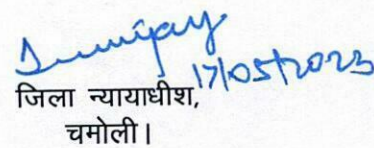 17/05/2023
जिला न्यायाधीश,
चमोली।